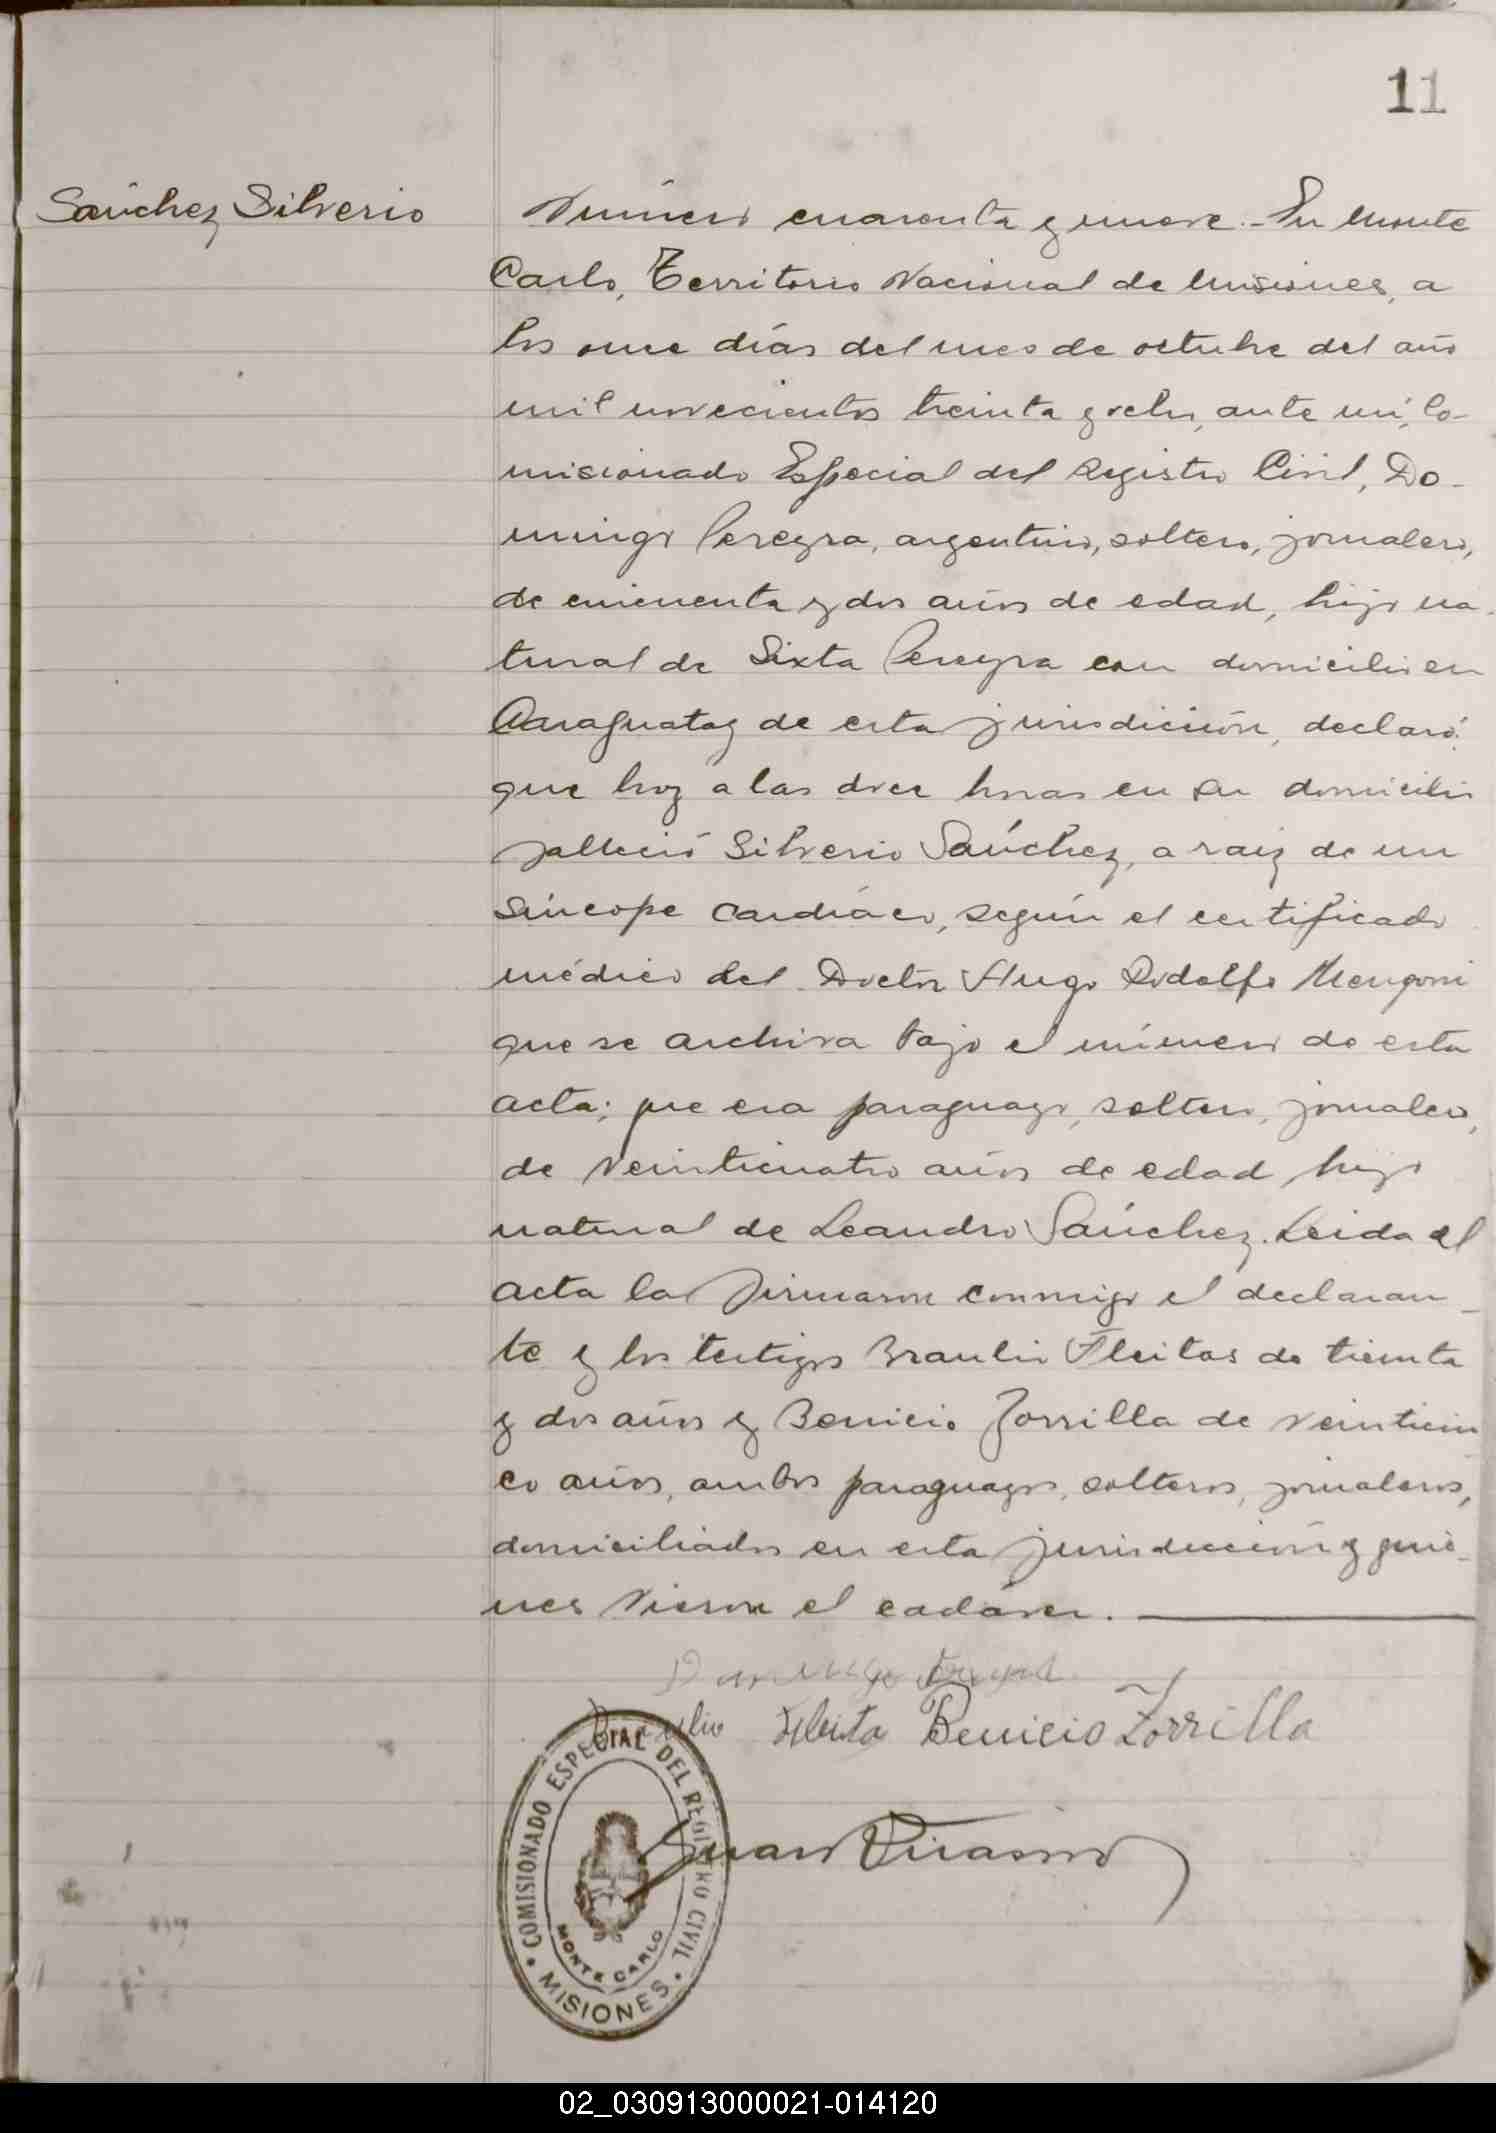 11
Sánchez Silverio
Número cuarenta y nueve.- En Monte
Carlo, Territorio Nacional de Misiones, a
los once días del mes de octubre del año
mil novecientos treinta y ocho, ante mí, Co-
misionado Especial del Registro Civil, Do-
mingo Pereyra, argentino, soltero, jornalero,
de cincuenta y dos años de edad, hijo na-
tural de Sixta Pereyra con domicilio en
Caraguatay de esta jurisdición, declaró:
que hoy a las doce horas en su domicilio
falleció Silverio Sánchez, a raiz de un
síncope cardíaco, según el certificado
médico del Doctor Hugo Rodolfo Mengoni
que se archiva bajo el número de esta
acta; que era paraguayo, soltero, jornalero,
de veinticuatro años de edad hijo
natural de Leandro Sánchez. Leida el
acta la firmaron conmigo el declaran-
te y los testigos Braulio Fleitas de treinta
y dos años y Benicio Zorrilla de veinticin
co años, ambos paraguayos, solteros, jornaleros,
domiciliados en esta jurisdicción y quie-
nes vieron el cadáver.
Domingo
Braulio Fleita Benicio Zorrilla
Juan
COMISIONADO ESPECIAL DEL REGISTRO CIVIL
MONTE CARLO
MISIONES
02_030913000021-014120